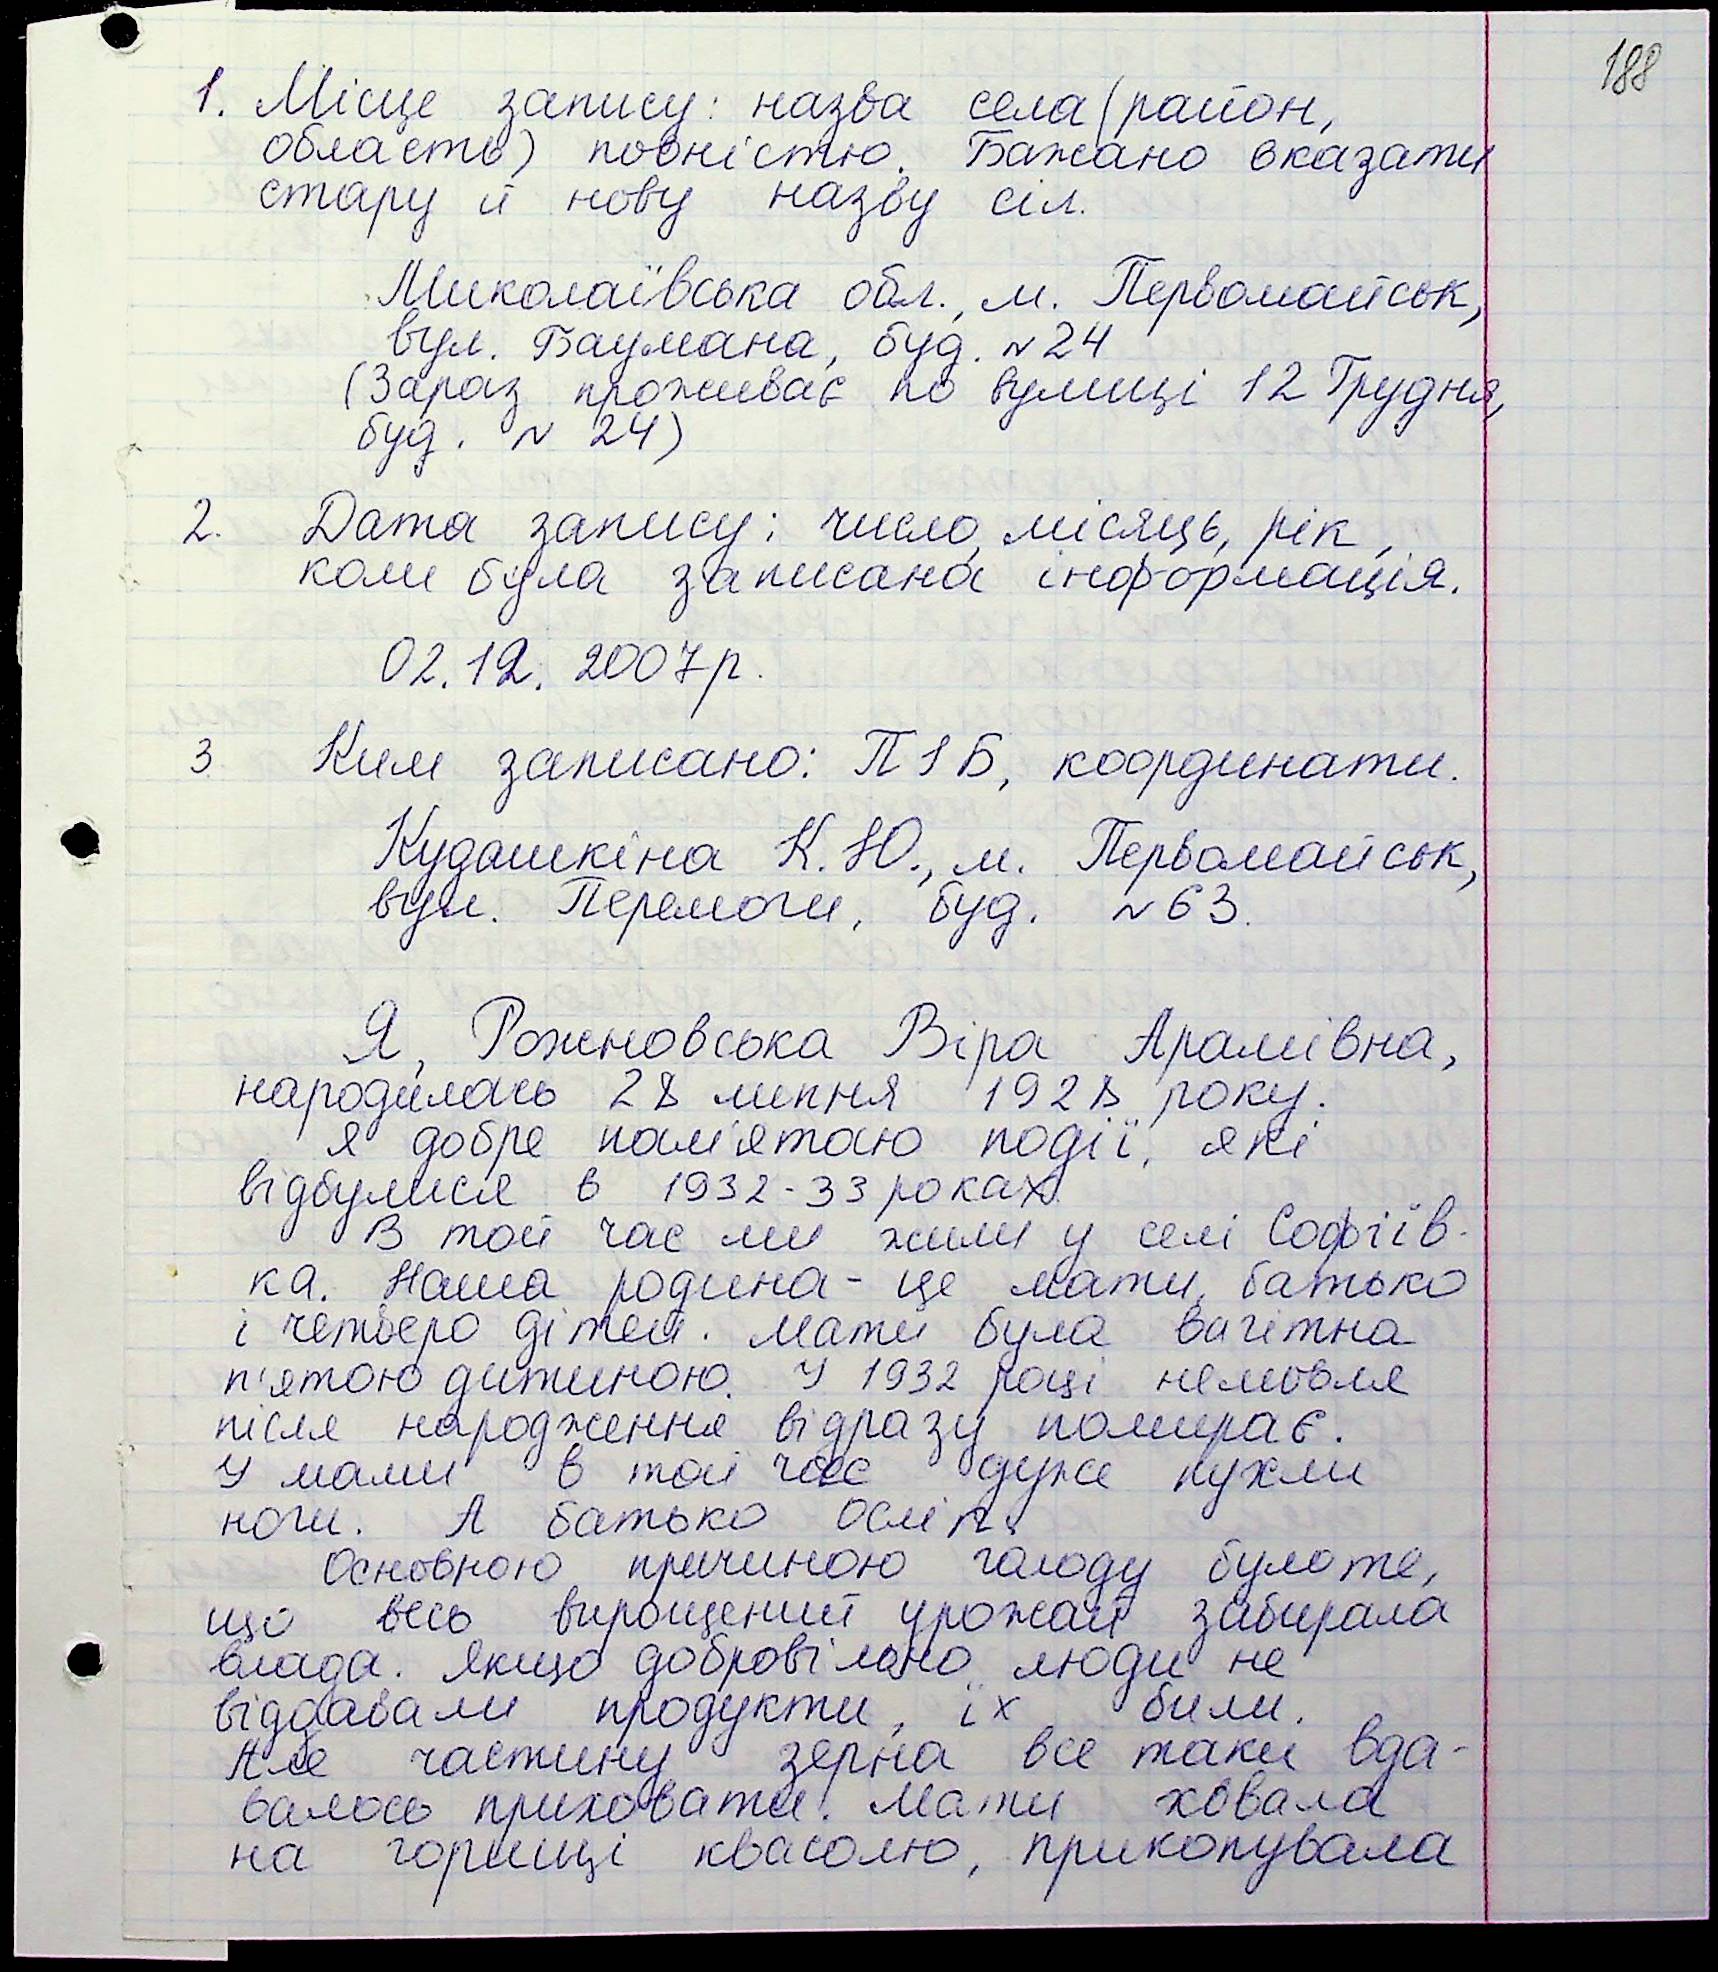 188
1. Місце запису: назва села (район,
область) повністю. Бажано вказати
стару й нову назву сіл.
Миколаївська обл., м. Первомайськ,
вул. Баумана, буд. №24
(Зараз проживає по вулиці 12 Грудня,
буд. № 24)
2. Дата запису: число, місяць, рік,
коли була записана інформація.
02.12.2007р.
3 Ким записано: ПІБ, координати.
Кудашкіна К.Ю., м. Первомайськ,
вул. Перемоги, буд. №63.
Я, Рожновська Віра Арамівна,
народилась 28 липня 1928 року.
Я добре пам'ятаю події, які
відбулися в 1932-33 роках.
В той час ми жили у селі Софіїв-
ка. Наша родина - це мати, батько
і четверо дітей. Мати була вагітна
п'ятою дитиною. У 1932 році немовля
після народження відразу помирає.
У мами в той час дуже пухли
ноги. А батько осліп.
Основною причиною голоду було те,
що весь вирощений урожай забирала
влада. Якщо добровільно люди не
віддавали продукти, їх били.
Але частину зерна все таки вда-
валось приховати. Мати ховала
на горищі квасолю, прикопувала